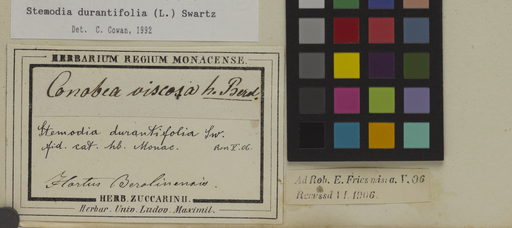 Stemodia durantifolia (L.) Swartz
Det. C. Cowan. 1992
HERBARIUM REGIUM MONACENSE.
Conobea viscosa h. Berol.
Stemodia durantifolia Sw.
fid. cat. hb. Monac.
Hortus Berolinensis.
HERB. ZUCCARINII.
Herbar. Univ. Ludov. Maximil.
Ad Rob. E. Fries missa. V. 06
Remissa VI 1906.